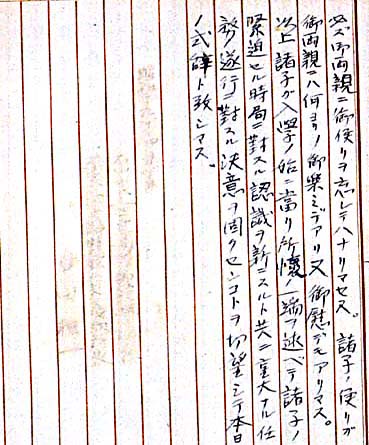 必ズ御両親ニ御便リヲ忘レテハナリマセヌ。諸子ノ便リガ
御両親ニハ何ヨリノ御楽ミデアリ又御慰デモアリマス。
以上諸子ガ入学ノ始ニ当リ所懐ノ一端ヲ述ベテ諸子ノ
緊迫セル時局ニ対スル認識ヲ新ニスルト共ニ重大ナル任
務ノ遂行ニ対スル決意ヲ固クセンコトヲ切望シテ本日
ノ式辞ト致シマス。